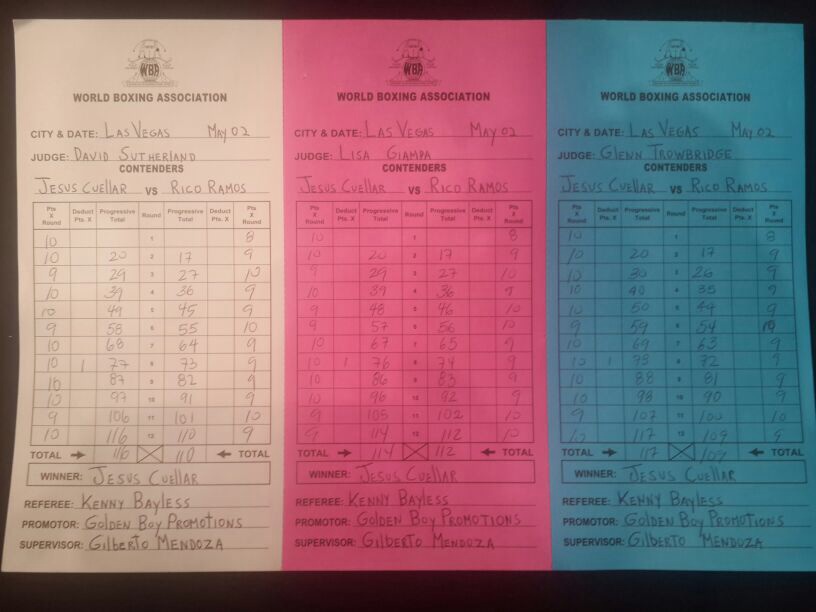 WBA
WORLD BOXING ASSOCIATION
CITY & DATE: LAS VEGAS MAY 02
JUDGE: DAVID SUTHERLAND
CONTENDERS
JESUS CUELLAR VS RICO RAMOS
Pts X Round Deduct Pts. X Progressive Total Round Progressive Total Deduct Pts. X Pts X Round
10 1 8
10 20 2 17 9
9 29 3 27 10
10 39 4 36 9
10 49 5 45 9
9 58 6 55 10
10 68 7 64 9
10 1 77 8 73 9
10 87 9 82 9
10 97 10 91 9
9 106 11 101 10
10 116 12 110 9
TOTAL 116 110 TOTAL
WINNER: JESUS CUELLAR
REFEREE: KENNY BAYLESS
PROMOTOR: GOLDEN BOY PROMOTIONS
SUPERVISOR: GILBERTO MENDOZA
WBA
WORLD BOXING ASSOCIATION
CITY & DATE: LAS VEGAS MAY 02
JUDGE: LISA GIAMPA
CONTENDERS
JESUS CUELLAR VS RICO RAMOS
Pts X Round Deduct Pts. X Progressive Total Round Progressive Total Deduct Pts. X Pts X Round
10 1 8
10 20 2 17 9
9 29 3 27 10
10 39 4 36 9
9 48 5 46 10
9 57 6 56 10
10 67 7 65 9
10 1 76 8 74 9
10 86 9 83 9
10 96 10 92 9
9 105 11 102 10
9 114 12 112 10
TOTAL 114 112 TOTAL
WINNER: JESUS CUELLAR
REFEREE: KENNY BAYLESS
PROMOTOR: GOLDEN BOY PROMOTIONS
SUPERVISOR: GILBERTO MENDOZA
WBA
WORLD BOXING ASSOCIATION
CITY & DATE: LAS VEGAS MAY 02
JUDGE: GLENN TROWBRIDGE
CONTENDERS
JESUS CUELLAR VS RICO RAMOS
Pts X Round Deduct Pts. X Progressive Total Round Progressive Total Deduct Pts. X Pts X Round
10 1 8
10 20 2 17 9
10 30 3 26 9
10 40 4 35 9
10 50 5 44 9
9 59 6 54 10
10 69 7 63 9
10 1 78 8 72 9
10 88 9 81 9
10 98 10 90 9
9 107 11 100 10
10 117 12 109 9
TOTAL 117 109 TOTAL
WINNER: JESUS CUELLAR
REFEREE: KENNY BAYLESS
PROMOTOR: GOLDEN BOY PROMOTIONS
SUPERVISOR: GILBERTO MENDOZA